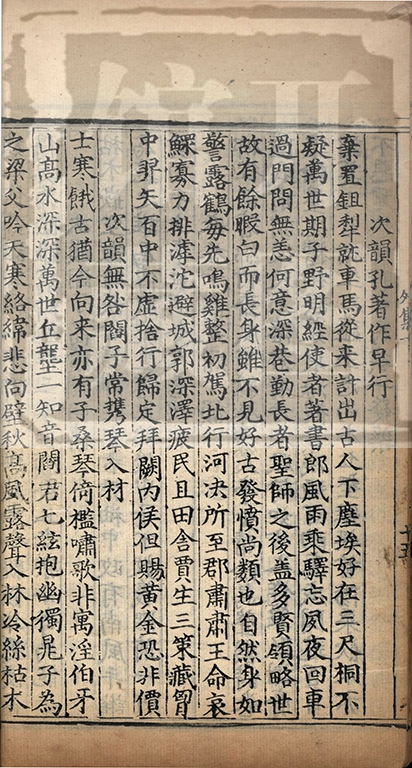 次韻孔著作早行
棄置鉏犁就車馬從来計出古人下塵埃好在三尺桐不
疑萬世期子野明經使者著書郎風雨乘驛忘夙夜回車
過門問無恙何意深巷勤長者聖師之後蓋多賢領略世
故有餘暇曰而長身雖不見好古發憤尚類也自然身如
警露鶴每先鳴雞整初駕北行河决所至郡肅肅王命哀
鰥寡力排滹沱避城郭深澤疲民且田舍賈生三策藏胷
中羿矢百中不虚捨行歸定拜闕内侯但賜黄金恐非價
次韻無咎閻子常㩗琴入材
士寒餓古猶今向来亦有子桑琴倚檻嘯歌非寓淫伯牙
山髙水深深萬世丘壟一知音閻君七絃抱幽獨晁子為
之梁父吟天寒絡緯悲向壁秋髙風露聲入林冷絲枯木